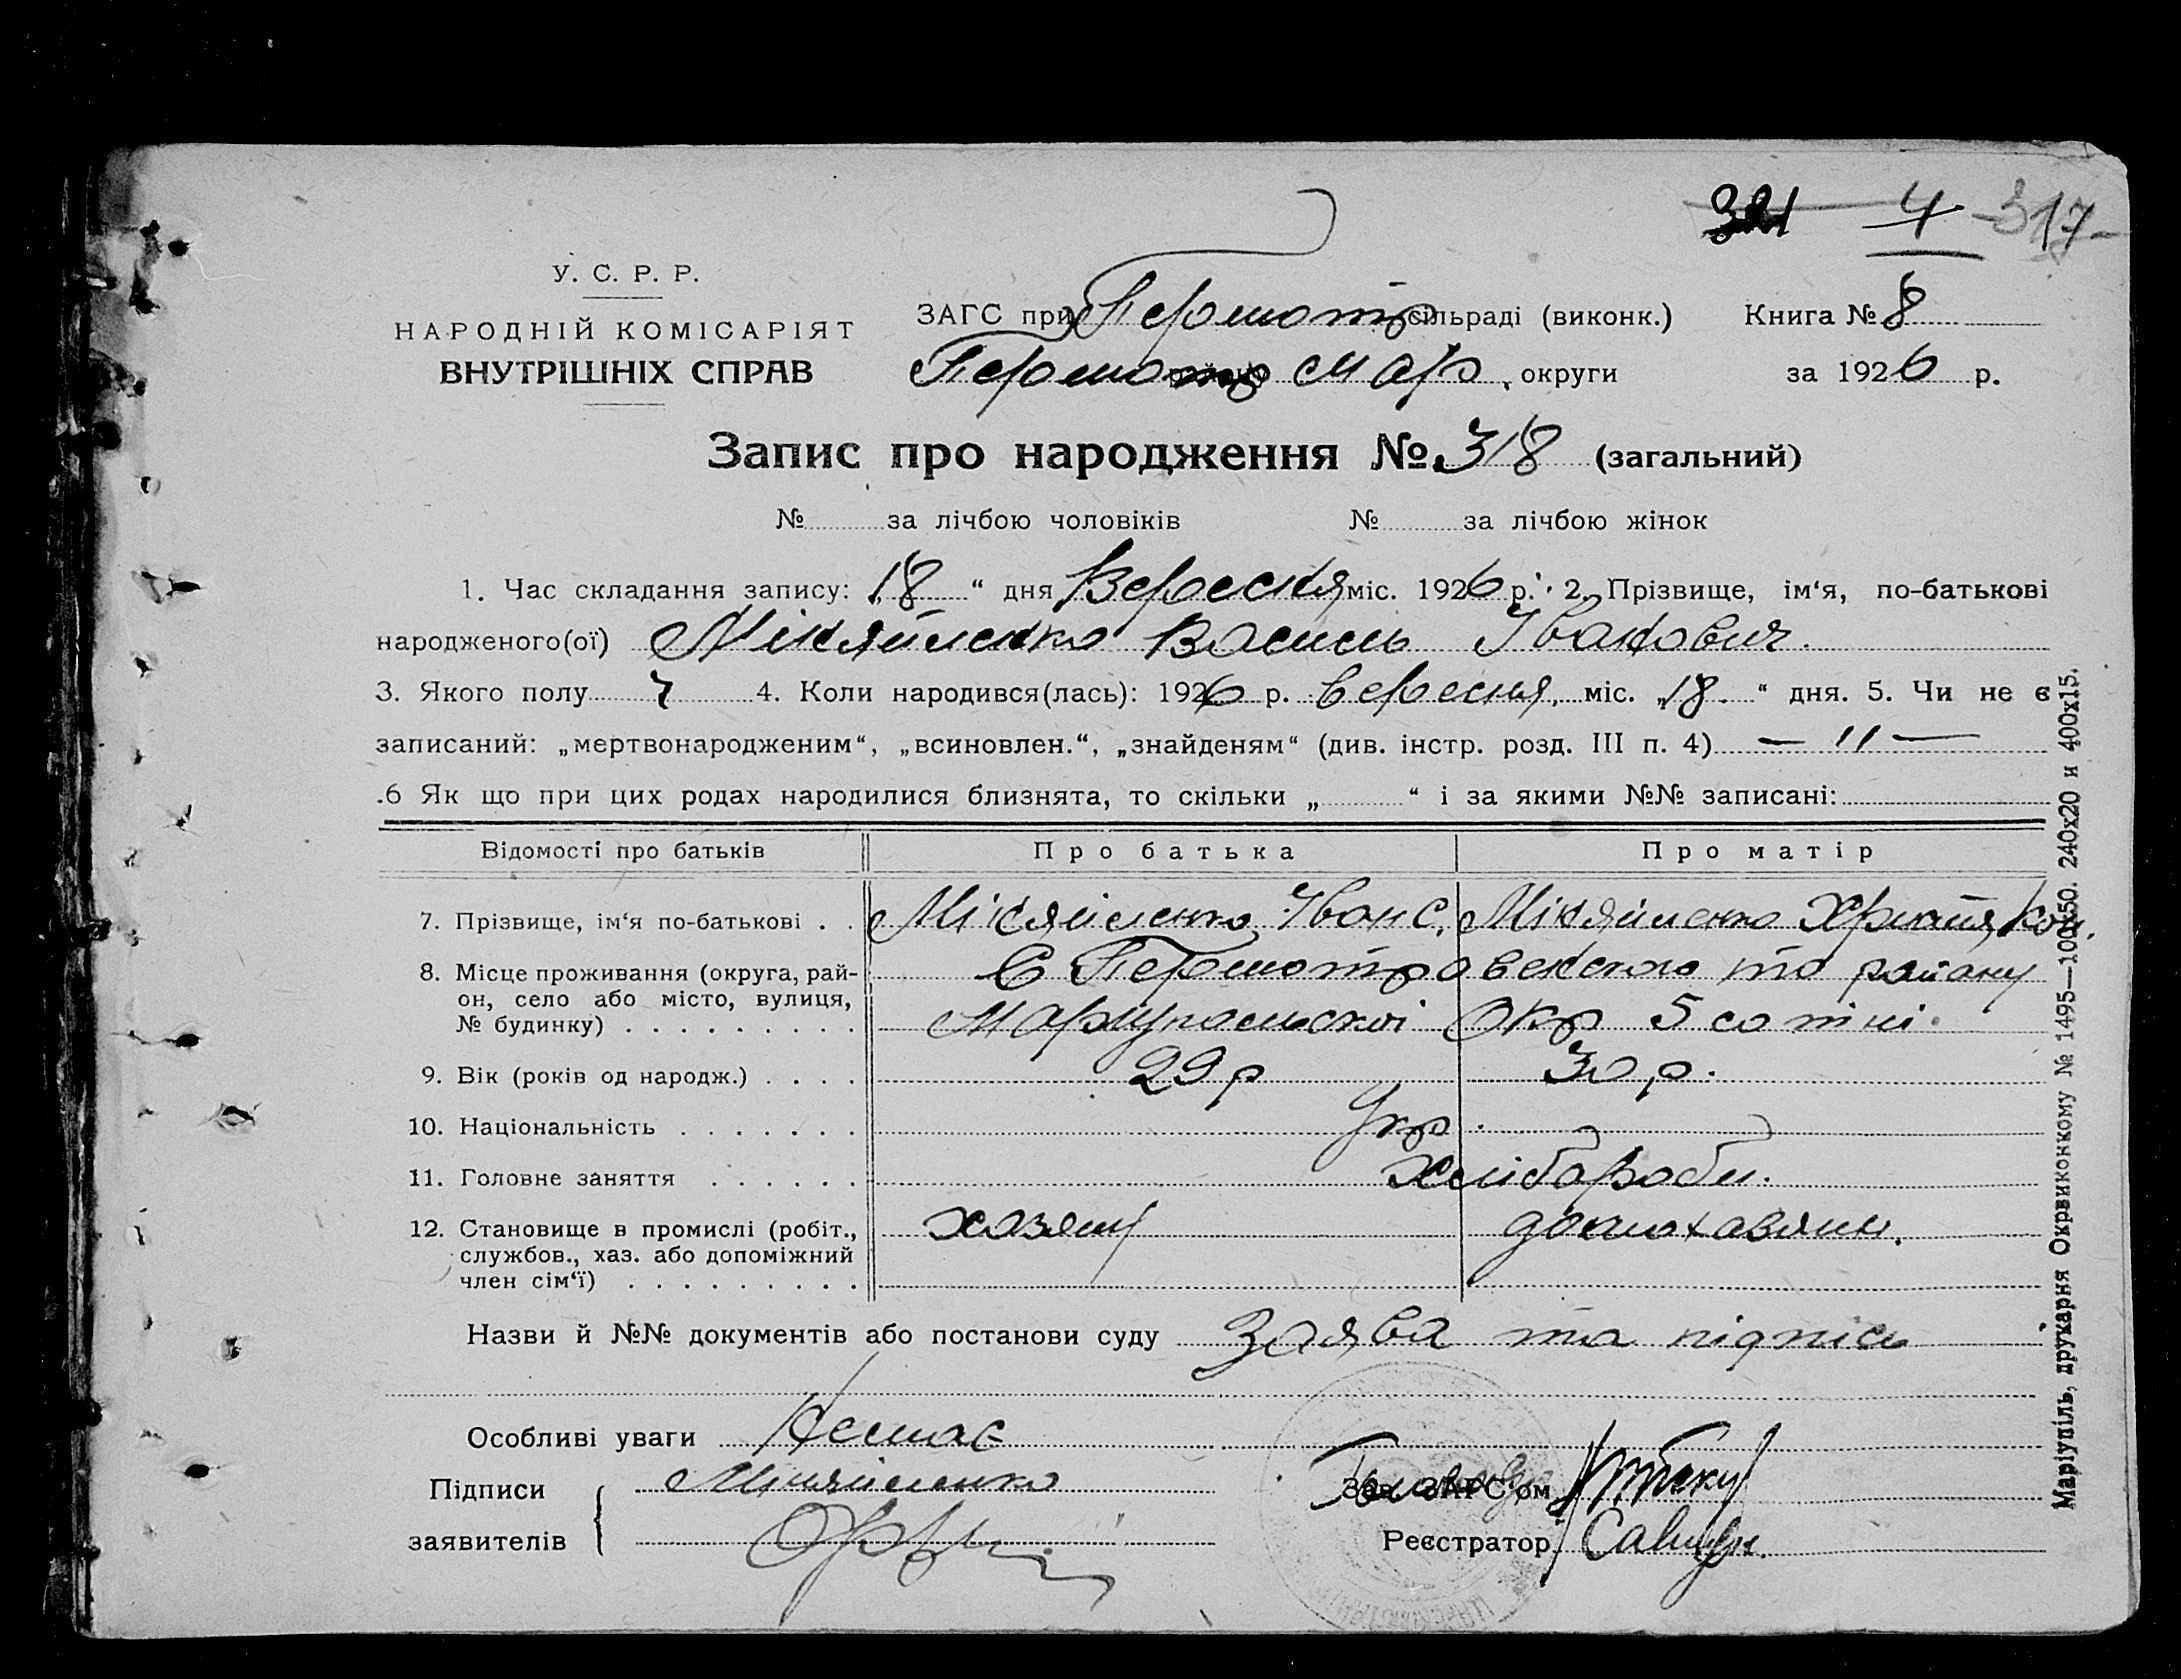 321 4 317
У. С. Р. Р.
НАРОДНІЙ КОМІСАРІЯТ
ВНУТРІШНІХ СПРАВ
ЗАГС при Першотр сільраді (виконк.) Книга № 8
Першотр Мар. округи за 1926 р.
Запис про народження № 318 (загальний)
№ за лічбою чоловіків № за лічбою жінок
1. Час складання запису: „18“ дня Вересня міс. 1926 р. 2. Прізвище, ім‘я, по-батькові
народженого(ої) Міняйленко Василь Іванович.
3. Якого полу Ч 4. Коли народився(лась): 1926 р. вересня, міс. „18.“ дня. 5. Чи не є
записаний: „мертвонародженим“, „всиновлен.“, „знайденям“ (див. інстр. розд. III п. 4) — 〃 —
.6 Як що при цих родах народилися близнята, то скільки „ “ і за якими №№ записані:
Відомості про батьків Про батька Про матір
7. Прізвище, ім‘я по-батькові . . Міняйленко Іван С. Міняйленко
8. Місце проживання (округа, рай- С
он, село або місто, вулиця, Маріупольської Окр 5 сотні.
№ будинку) . . . . . . . . .
9. Вік (років од народж.) . . . . 29 р 30 р.
10. Національність . . . . . . . Укр.
11. Головне заняття . . . . . . Хлібароби.
12. Становище в промислі (робіт., хазяин
службов., хаз. або допоміжний
член сім‘ї) . . . . . . . . .
Назви й №№ документів або постанови суду Заява та підпис
Особливі уваги Немає
Підписи Міняйленко Зав. ЗАГС‘ом
заявителів Реєстратор
Маріупіль, друкарня Окрвиконкому № 1495—100х50. 240х20 и 400х15.